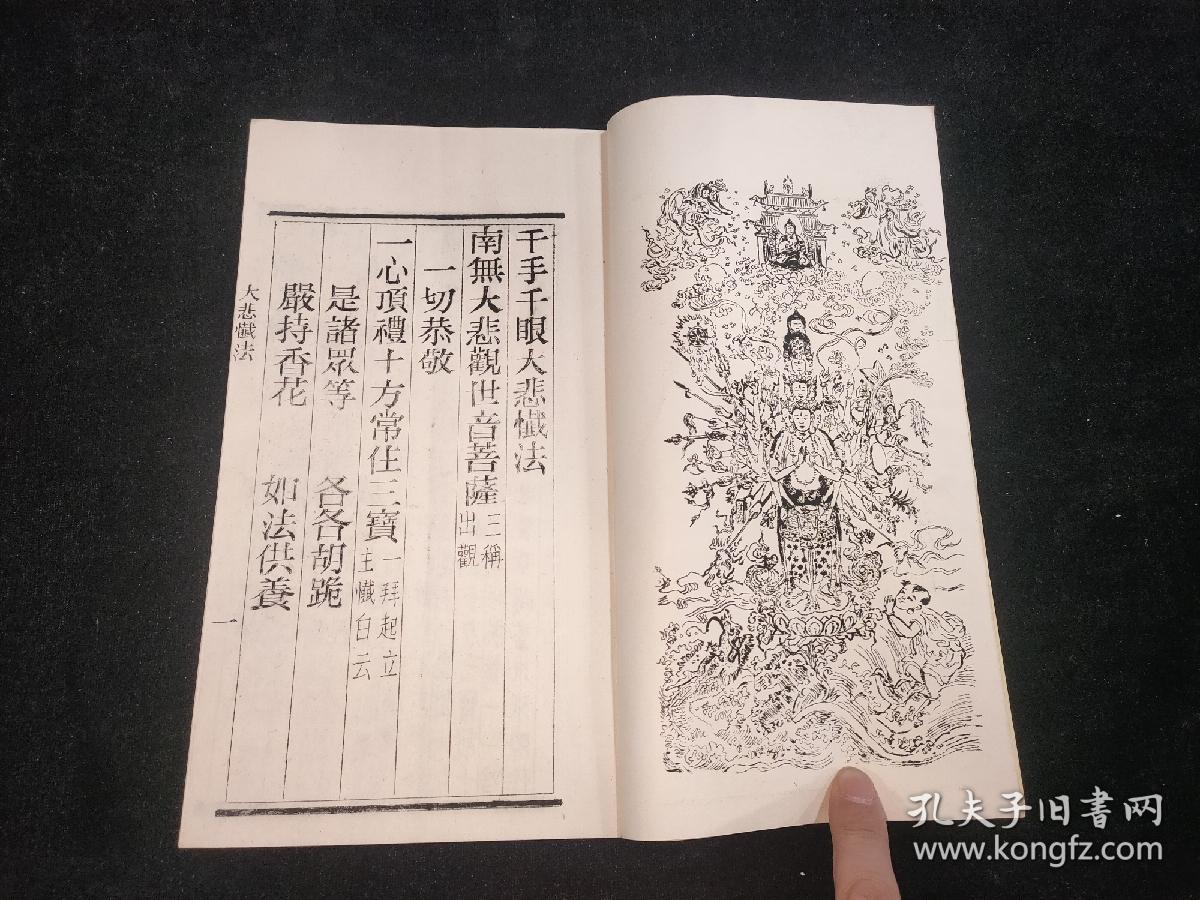 千手千眼大悲懺法
南無大悲觀世音菩薩三稱出觀
一切恭敬
一心頂禮十方常住三寶一拜起立主懺白云
是諸眾等 各各胡跪
嚴持香花 如法供養
大悲懺法 一
孔夫子旧書网
www.kongfz.com